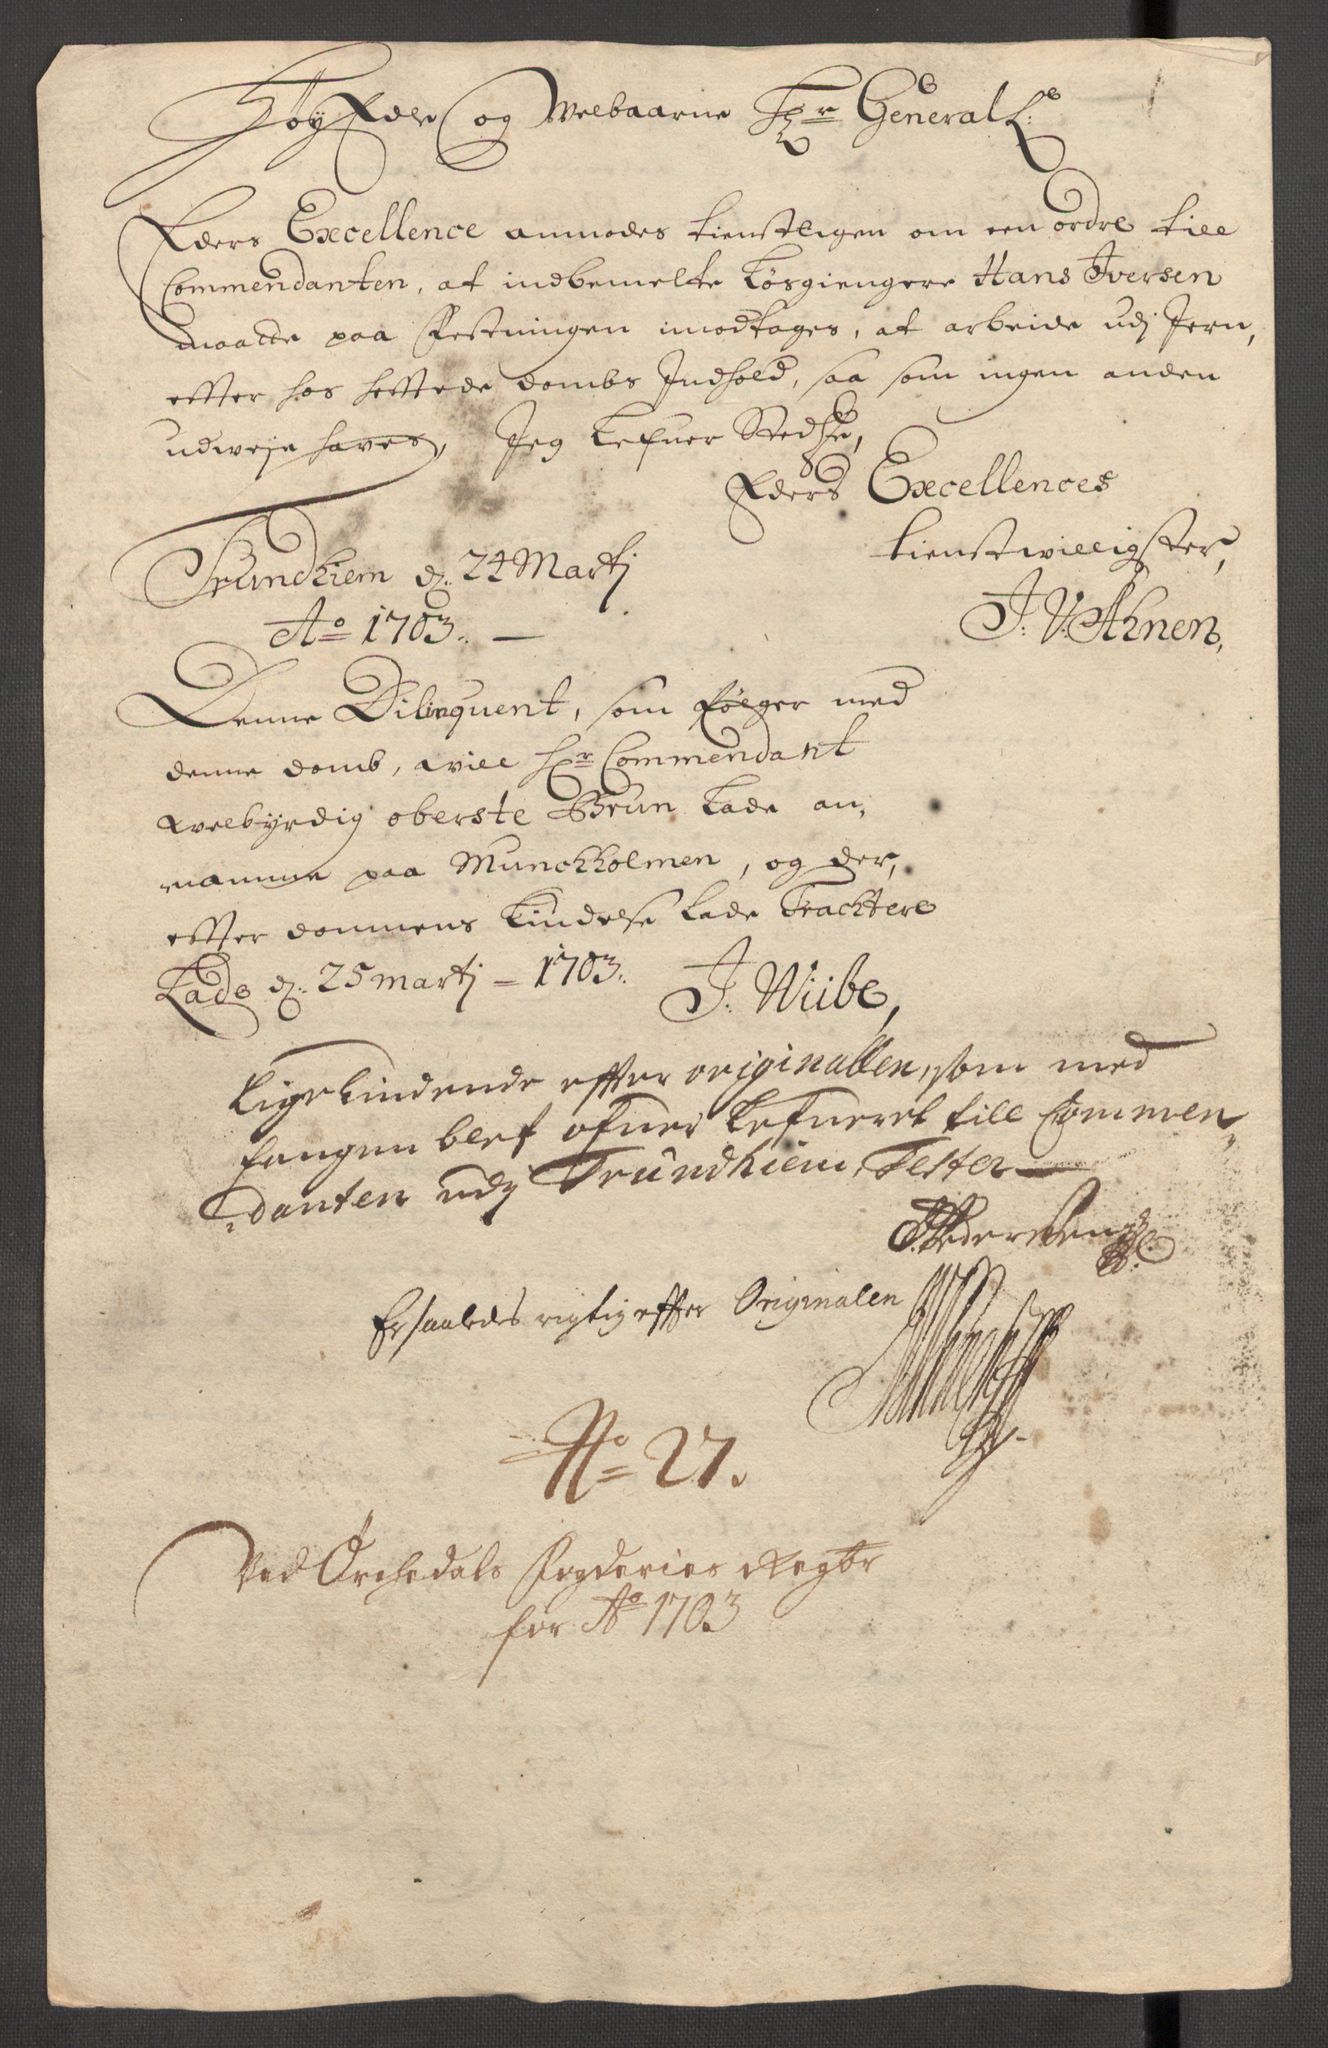 Høy Edle og Welbaarne Hr General L:
Eders Excellence anmodes tienstligen om een ordre till
Commendanten, at indbemelte Løsgiengere Hans Iversen
maatte paa Festningen imodtages, at arbeide udj Jern,
efter hos heftede dombs Indhold, saa som ingen anden
udweje haves, Jeg lefuer Stedse,
Eders Excellences
tienstwilligster,
Trundhiem d. 24 Martj
Ao 1703.
J: V: Ahnen,
Denne Dilinquent, som følger med
denne domb, will hr Commendant
welbyrdig oberste Brun lade an,
namme paa Munckholmen, og der,
efter dommens liudelse lade Trachtere
Lade d. 25 martj - 1703.
J. Wibe,
Ligeliudende efter originallen, som med
fangen blef ofuer lefueret till Commen
danten udj Trundhiem, Tester
Er saaledes rigtig efter Originalen
No 27.
Ved Orchedals Fogderies Regbr
for Ao 1703